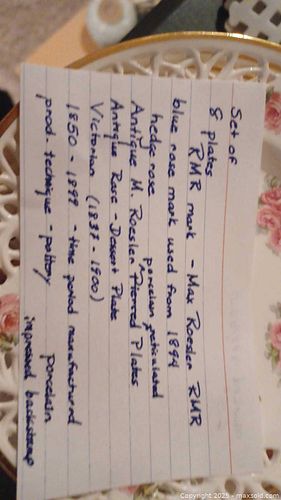 Set of
8 plates
RMR mark - Max Roesler RMR
blue rose mark used from 1894
hede rose
porcelain reticulated
Antique M. Roesler Pierced Plates
Antique Rare - Dessert Plate
Victorian (1837-1900)
1850 - 1899 - time period manufactured
prod. technique - pottery
porcelain
impressed backstamp
Copyright 2025 - maxsold.com